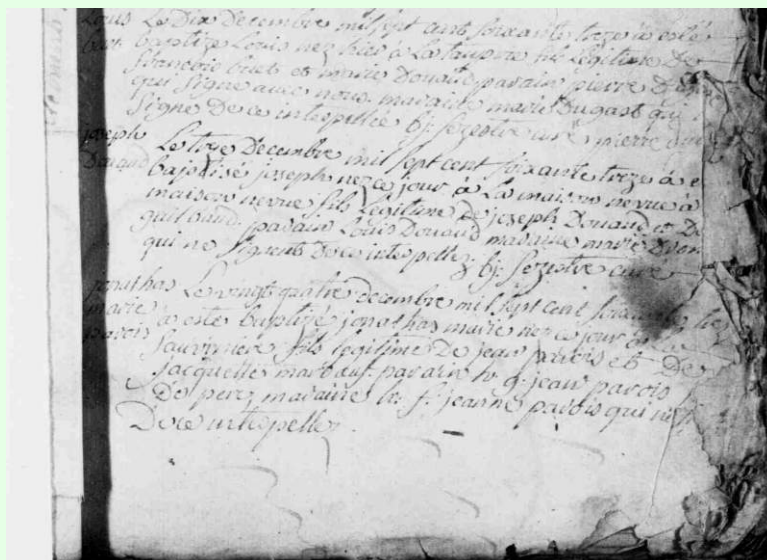 Louis Le Dix Decembre mil sept cent soixante treze à esté
baptizé Louis nez hier à La fils Legitime De
francois et marie Douaud parain pierre
qui signe avec nous. maraine marie Dugast qui
signe De ce interpellée bj. sezestre curé pierre
joseph Le treze Decembre mil sept cent soixante treze à e
Douaud baptisé joseph nez ce jour à La maison nevue à
maison nevue fils Legitime de joseph Douaud et De
guilbaud. parain Louis Douaud maraine marie
qui ne signent De ce interpellez. bj. sezestre curé
jonathas Le vingt quatre decembre mil sept cent soixante
marie à esté baptizé jonathas marie nez ce jour à La
parois fils legitime De jean parois et De
jacquette parain h. g. jean parois
De pere, maraine h. f. jeanne parois qui ne
De ce interpellez.